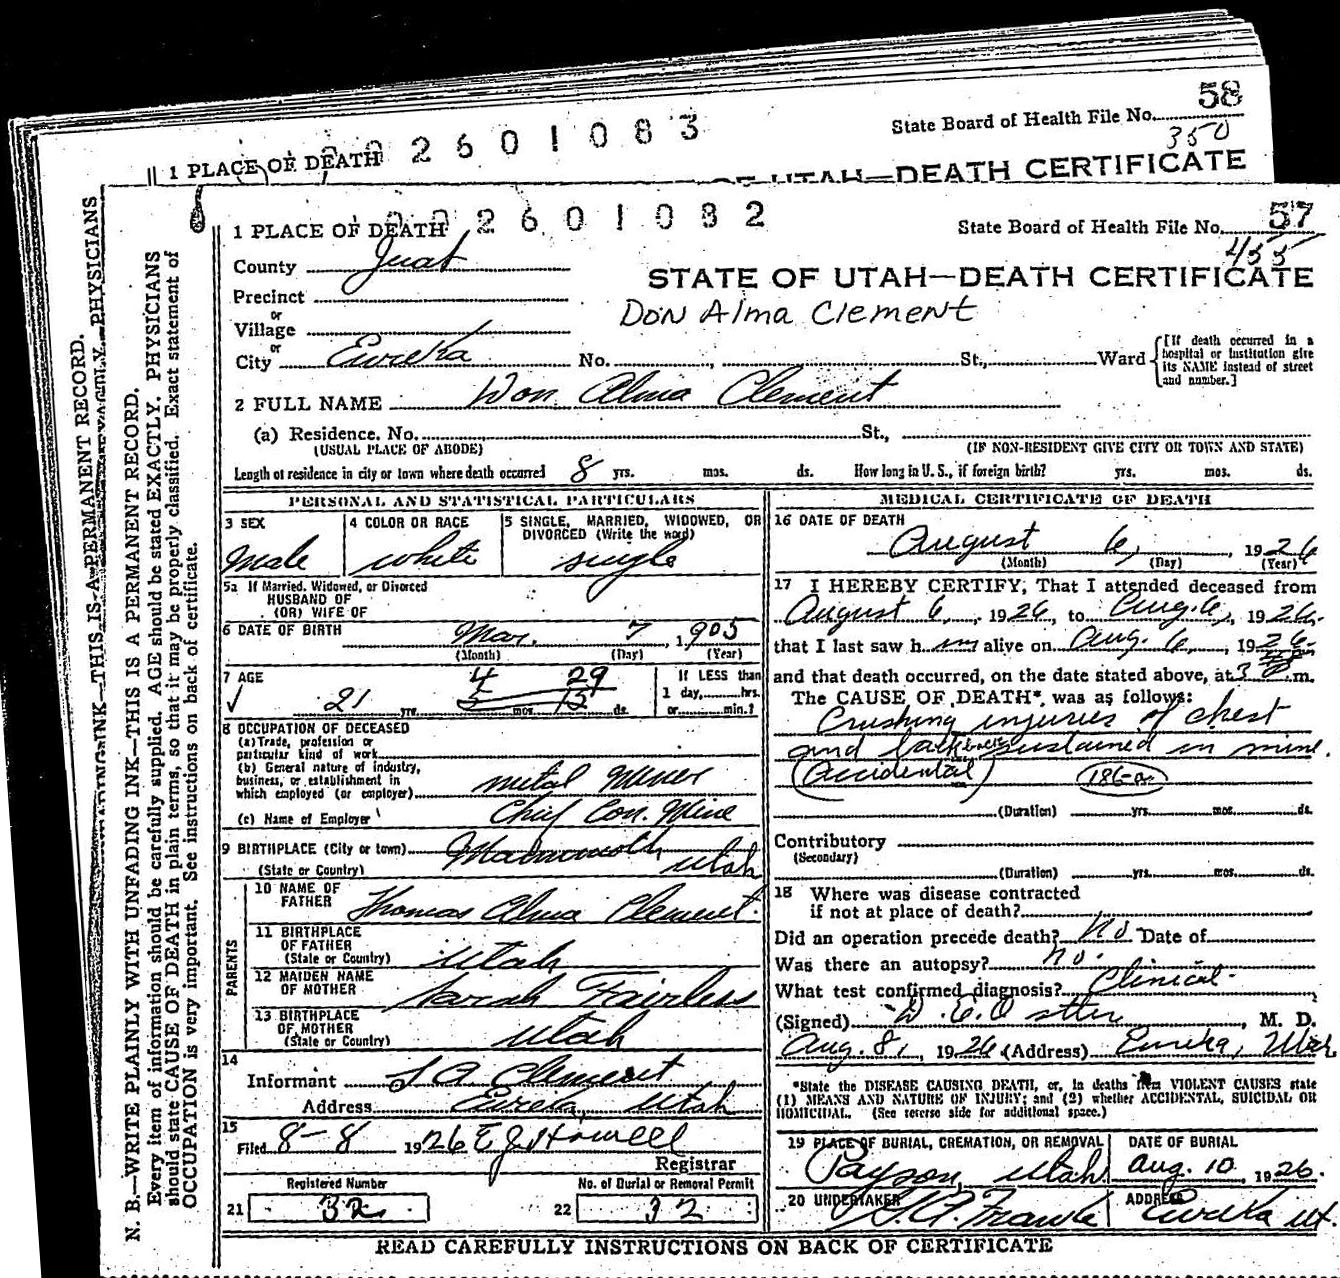 58
State Board of Health File No.
350
2601083
1 PLACE OF DEATH
OF UTAH—DEATH CERTIFICATE
2601082
57
1 PLACE OF DEATH
State Board of Health File No.
455
County Juab
STATE OF UTAH—DEATH CERTIFICATE
Precinct
or
Don Alma Clement
Village
or
City Eureka No. St., Ward
[If death occurred in a hospital or institution give its NAME instead of street and number.]
2 FULL NAME Don Alma Clement
(a) Residence. No. St.,
(USUAL PLACE OF ABODE) (IF NON-RESIDENT GIVE CITY OR TOWN AND STATE)
Length of residence in city or town where death occurred 8 yrs. mos. ds. How long in U. S., if foreign birth? yrs. mos. ds.
PERSONAL AND STATISTICAL PARTICULARS
3 SEX
Male
4 COLOR OR RACE
white
5 SINGLE, MARRIED, WIDOWED, OR DIVORCED (Write the word)
single
5a If Married, Widowed, or Divorced
HUSBAND OF
(OR) WIFE OF
6 DATE OF BIRTH Mar. 7, 1905
(Month) (Day) (Year)
7 AGE
4 29
21 yrs. 5 mos. 13 ds.
If LESS than
1 day, hrs.
or min.?
8 OCCUPATION OF DECEASED
(a) Trade, profession or
particular kind of work
(b) General nature of industry,
business, or establishment in
which employed (or employer) metal Miner
(c) Name of Employer Chief Con. Mine
9 BIRTHPLACE (City or town) Mammoth
(State or Country) Utah
PARENTS
10 NAME OF FATHER Thomas Alma Clement.
11 BIRTHPLACE OF FATHER (State or Country) Utah
12 MAIDEN NAME OF MOTHER Sarah Fairless
13 BIRTHPLACE OF MOTHER (State or Country) Utah
14
Informant Clement
Address Eureka, Utah
15
Filed 8-8 1926 E J Howell
Registrar
Registered Number
21 32
No. of Burial or Removal Permit
22 32
MEDICAL CERTIFICATE OF DEATH
16 DATE OF DEATH
August 6, 1926
(Month) (Day) (Year)
17 I HEREBY CERTIFY, That I attended deceased from
August 6, 1926, to Aug. 6, 1926.
that I last saw him alive on Aug. 6, 1926
and that death occurred, on the date stated above, at 3 P.m.
The CAUSE OF DEATH*, was as follows:
Crushing injuries of chest
and sustained in mine.
(Accidental) 186-a
(Duration) yrs. mos. ds.
Contributory
(Secondary)
(Duration) yrs. mos. ds.
18 Where was disease contracted
if not at place of death?
Did an operation precede death? No Date of
Was there an autopsy? no.
What test confirmed diagnosis? Clinical
(Signed) D. E. Ostler, M. D.
Aug. 8, 1926 (Address) Eureka, Utah
*State the DISEASE CAUSING DEATH, or, in deaths from VIOLENT CAUSES state
(1) MEANS AND NATURE OF INJURY; and (2) whether ACCIDENTAL, SUICIDAL OR
HOMICIDAL. (See reverse side for additional space.)
19 PLACE OF BURIAL, CREMATION, OR REMOVAL
Payson, Utah.
DATE OF BURIAL
Aug. 10, 1926.
20 UNDERTAKER
ADDRESS
Eureka Ut.
READ CAREFULLY INSTRUCTIONS ON BACK OF CERTIFICATE
N. B.—WRITE PLAINLY WITH UNFADING INK—THIS IS A PERMANENT RECORD.
Every item of information should be carefully supplied. AGE should be stated EXACTLY. PHYSICIANS
should state CAUSE OF DEATH in plain terms, so that it may be properly classified. Exact statement of
OCCUPATION is very important. See instructions on back of certificate.
INK—THIS IS A PERMANENT RECORD.
PHYSICIANS